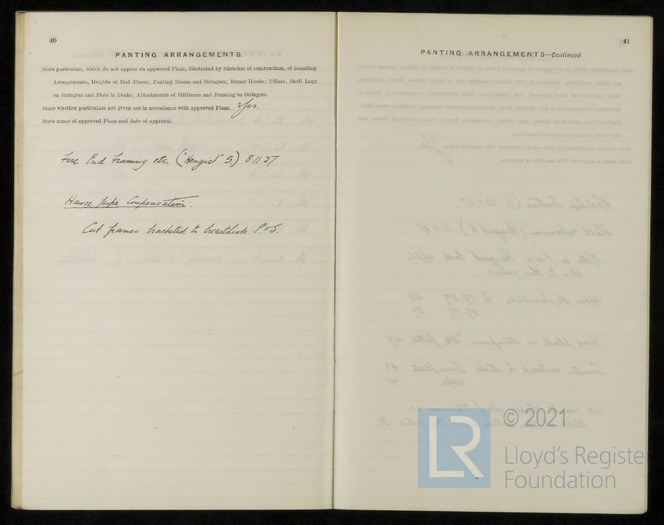 40
PANTING ARRANGEMENTS.
State particulars, which do not appear on approved Plans, illustrated by Sketches of construction, of Scantling
Arrangements, Heights of End Floors; Panting Beams and Stringers; Breast Hooks; Pillars, Shell Lugs
on Stringers and Flats in Peaks; Attachments of Stiffeners and Framing to Stringers.
State whether particulars not given are in accordance with approved Plans. Yes.
State name of approved Plans and date of approval.
Fore End Framing etc. ("Hengist" S.) 8 11 27
Hawse pipe Compensation.
Cut frames bracketed to P.&S.
41
PANTING ARRANGEMENTS—Continued.
© 2021
LR
Lloyd's Register
Foundation